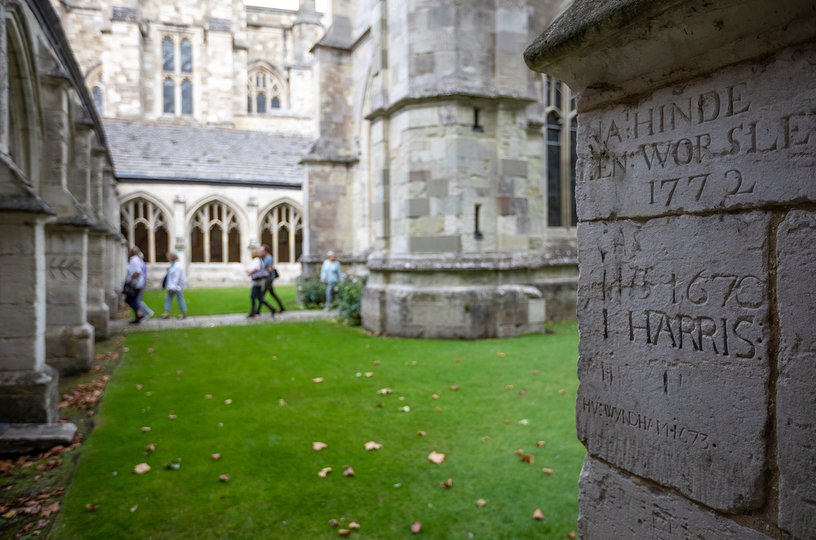 NA: HINDE
EN: WORSLE
1772
1670
I HARRIS:
HV: WYNDHAM · 1673 ·